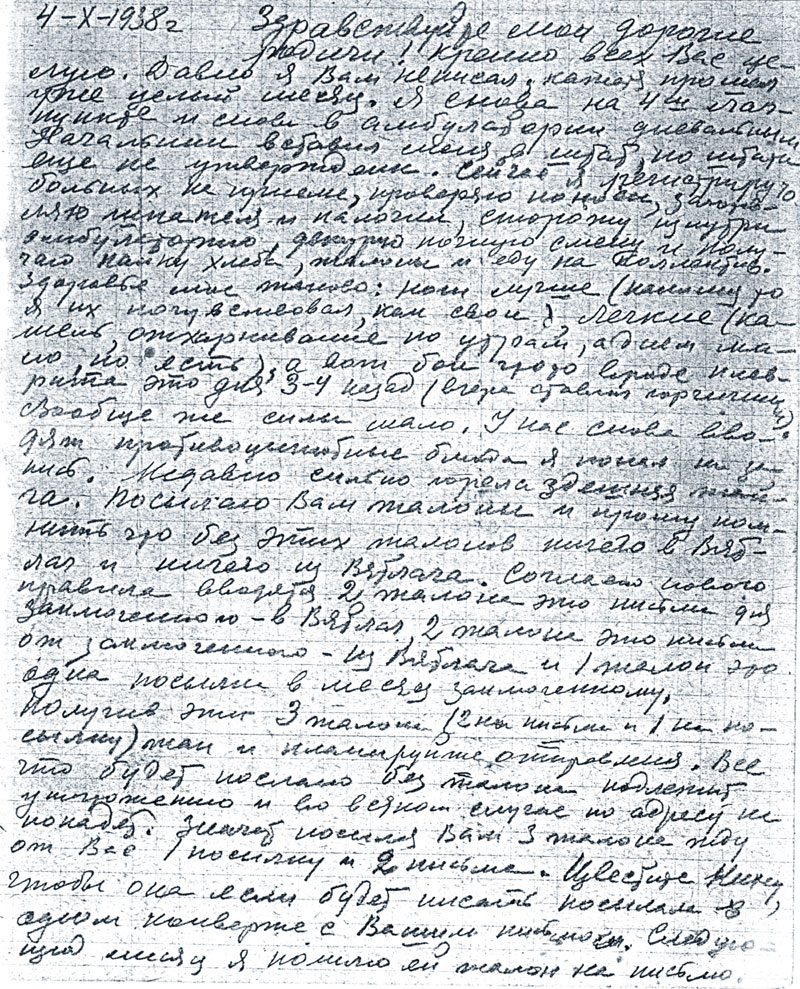 4-X-1938 г Здравствуйте мои дорогие
родичи! Крепко всех Вас це-
лую. Давно я Вам не писал, кажется прошел
уже целый месяц. Я снова на 4м лаг-
пункте и снова в амбулатории дневальным
Начальник вставил меня в штат, но штаты
еще не утверждены. Сейчас я регистрирую
больных на приеме, проверяю поносы, заправ-
ляю лекпателя и палочки, сторожу изнутри
амбулаторию, дежурю ночную смену и полу-
чаю пайку хлеба, талоны и еду на Коллектив.
Здоровье мое таково: ноги лучше (наконец то
я их почувствовал, как свои), легкие (ка-
шель, отхаркивание по утрам, а днем ма-
ло, но есть), а вот бок вроде плев-
рита это дня 3-4 назад (вчера ставил горчичник)
Вообще же силы мало. У нас снова вво-
дят противоцынготные блюда я попал на за-
пись. Недавно сильно горела здешняя тай-
га. Посылаю Вам талоны и прошу пом-
нить что без этих талонов ничего в Вят-
лаг и ничего из Вятлага. Согласно нового
правила вводятся 2 талона это письма для
заключенного - в Вятлаг, 2 талона это письма
от заключенного - из Вятлага и 1 талон это
одна посылка в месяц заключенному.
Получив эти 3 талона (2 на письма и 1 на по-
сылку) так и планируйте отправления. Все
что будет послано без талона подлежит
уничтожению и во всяком случае по адресу не
попадет. Значит посылая Вам 3 талона жду
от Вас 1 посылку и 2 письма. Известите Нину,
чтобы она если будет писать посылала в
одном конверте с Вашим письмом. Следую-
щий месяц я пошлю ей талон на письмо.